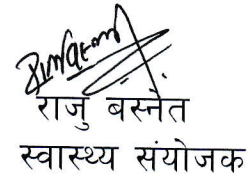 राजु बस्नेत
स्वास्थ्य संयोजक